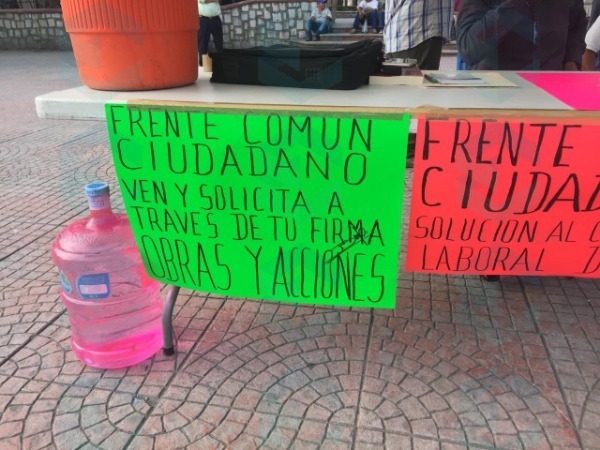 FRENTE COMUN
CIUDADANO
VEN Y SOLICITA A
TRAVES DE TU FIRMA
OBRAS Y ACCIONES
FRENTE
CIUDAD
SOLUCION AL
LABORAL D